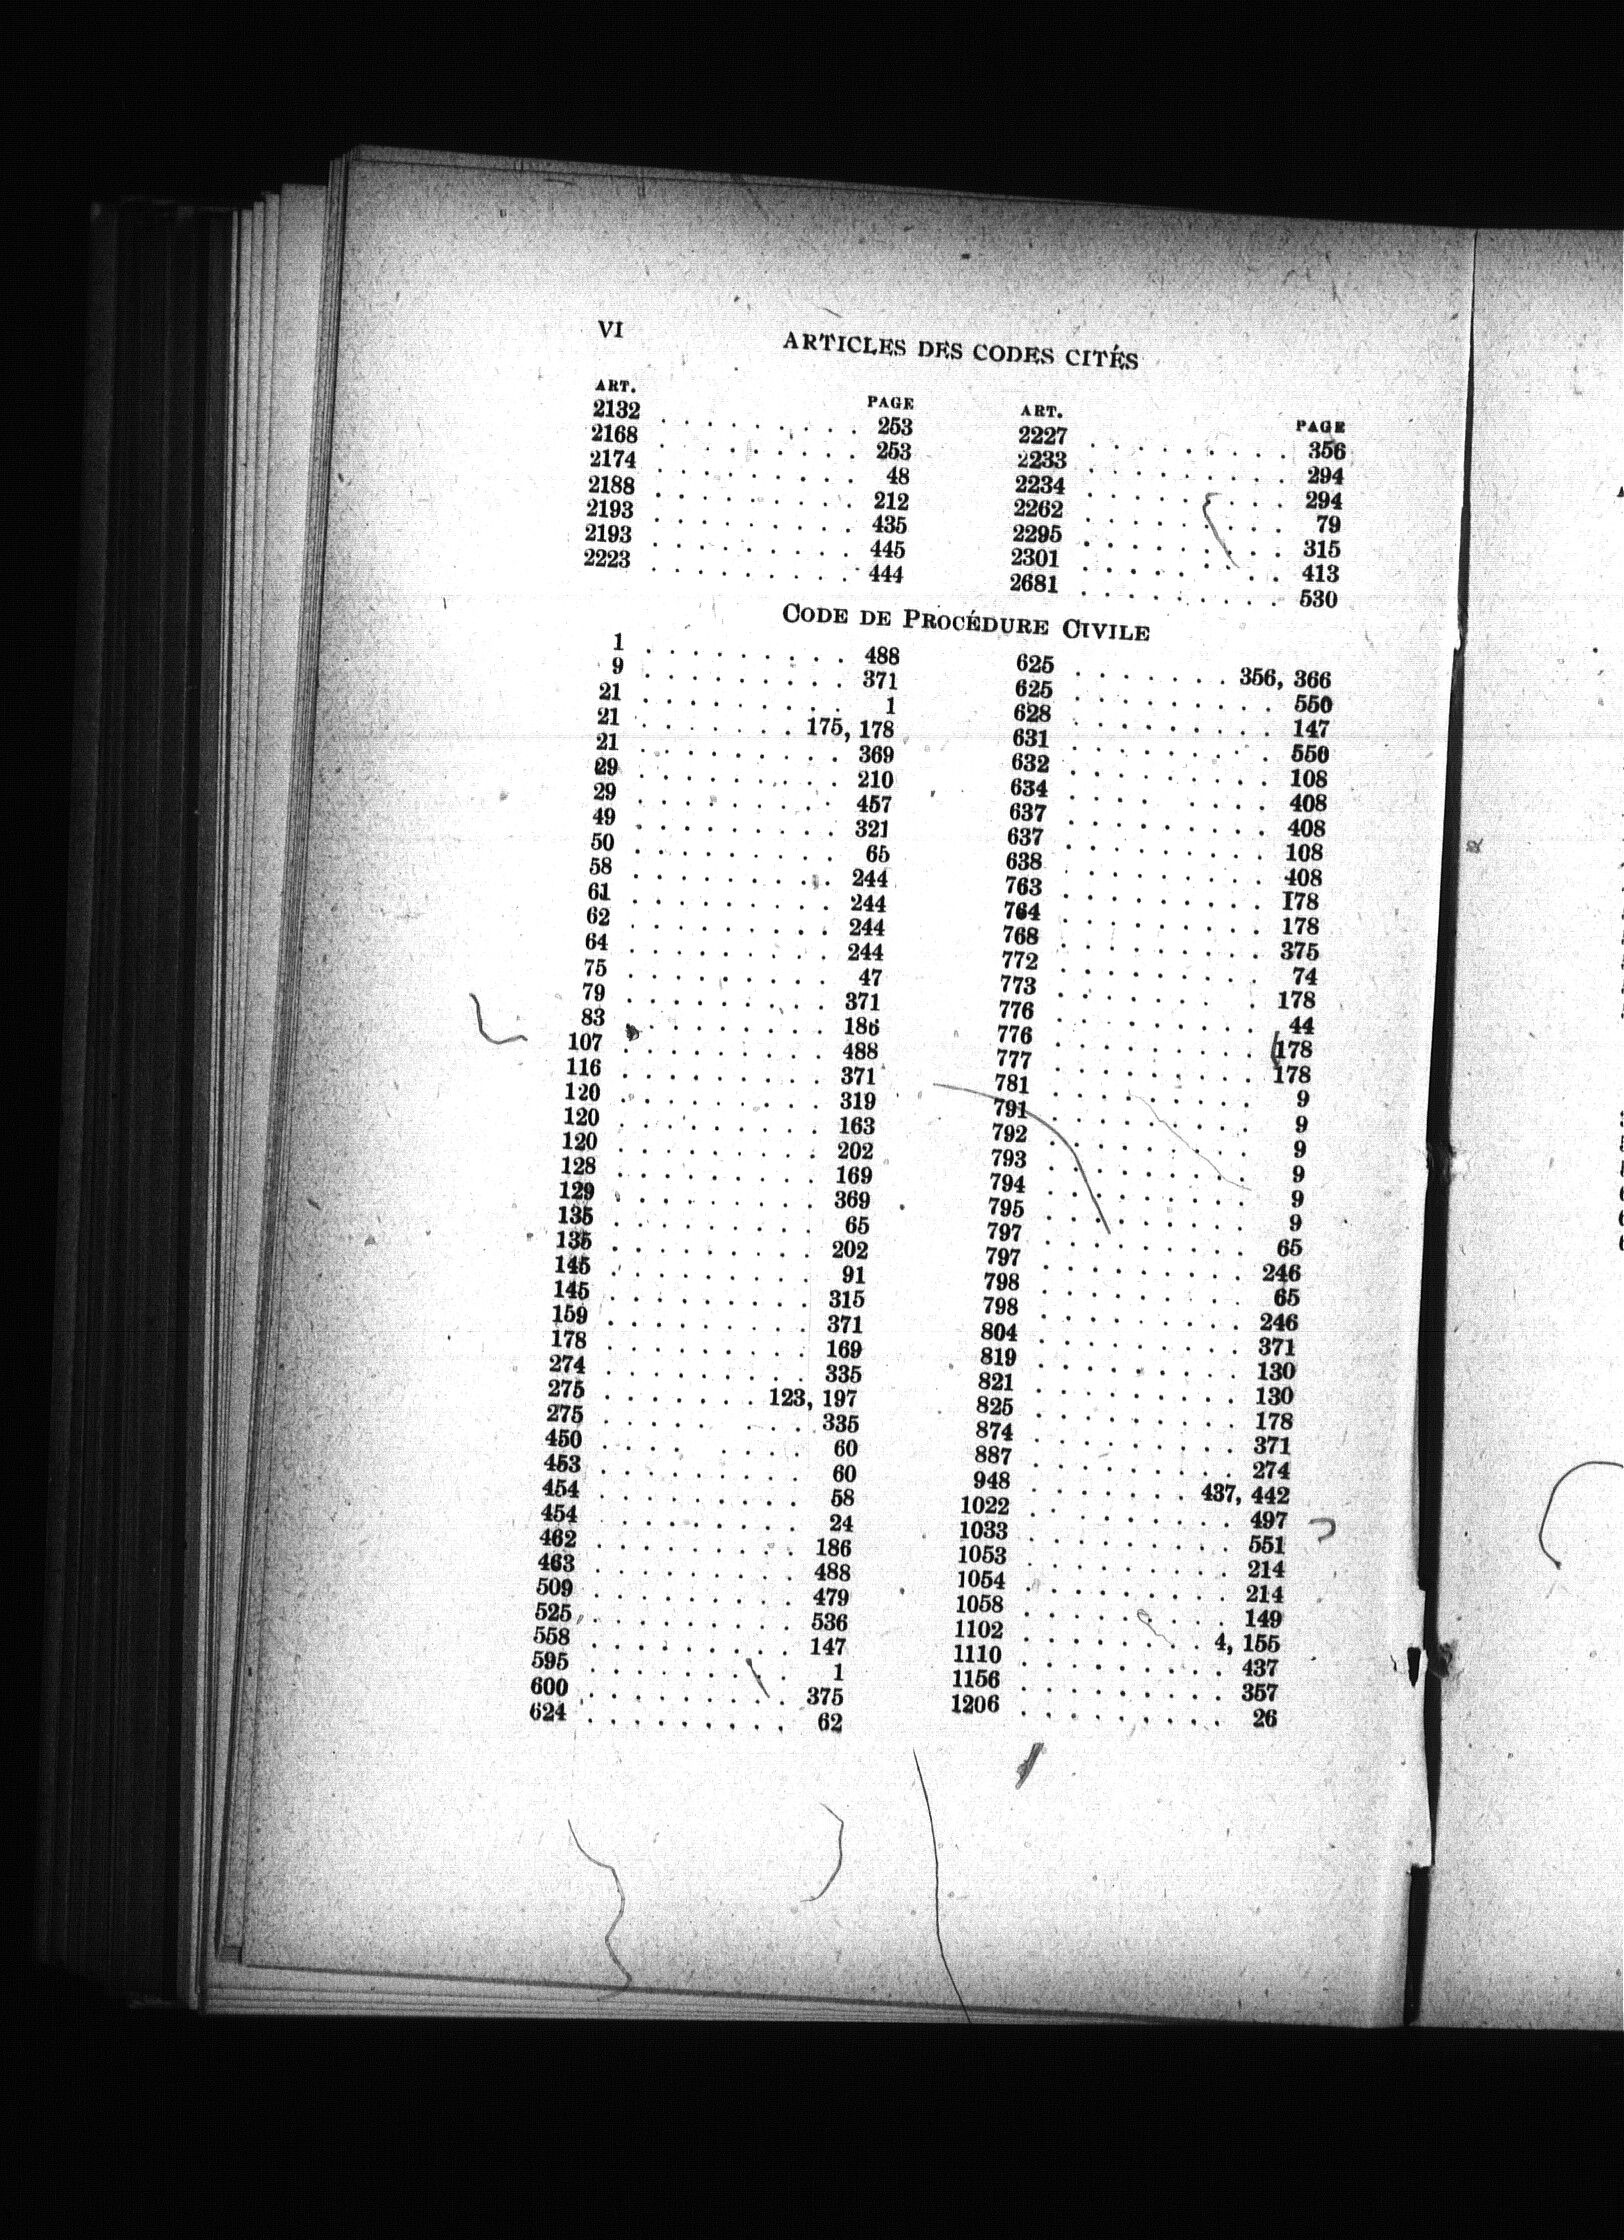 VI
ARTICLES DES CODES CITÉS
ART. PAGE
2132 . . . . . . . . . 253
2168 . . . . . . . . . 253
2174 . . . . . . . . . 48
2188 . . . . . . . . . 212
2193 . . . . . . . . . 435
2193 . . . . . . . . . 445
2223 . . . . . . . . . 444
ART. PAGE
2227 . . . . . . . . . 356
2233 . . . . . . . . . 294
2234 . . . . . . . . . 294
2262 . . . . . . . . . 79
2295 . . . . . . . . . 315
2301 . . . . . . . . . 413
2681 . . . . . . . . . 530
CODE DE PROCÉDURE CIVILE
1 . . . . . . . . . 488
9 . . . . . . . . . 371
21 . . . . . . . . . 1
21 . . . . . . . 175, 178
21 . . . . . . . . . 369
29 . . . . . . . . . 210
29 . . . . . . . . . 457
49 . . . . . . . . . 321
50 . . . . . . . . . 65
58 . . . . . . . . . 244
61 . . . . . . . . . 244
62 . . . . . . . . . 244
64 . . . . . . . . . 244
75 . . . . . . . . . 47
79 . . . . . . . . . 371
83 . . . . . . . . . 186
107 . . . . . . . . . 488
116 . . . . . . . . . 371
120 . . . . . . . . . 319
120 . . . . . . . . . 163
120 . . . . . . . . . 202
128 . . . . . . . . . 169
129 . . . . . . . . . 369
135 . . . . . . . . . 65
135 . . . . . . . . . 202
145 . . . . . . . . . 91
145 . . . . . . . . . 315
159 . . . . . . . . . 371
178 . . . . . . . . . 169
274 . . . . . . . . . 335
275 . . . . . . . 123, 197
275 . . . . . . . . . 335
450 . . . . . . . . . 60
453 . . . . . . . . . 60
454 . . . . . . . . . 58
454 . . . . . . . . . 24
462 . . . . . . . . . 186
463 . . . . . . . . . 488
509 . . . . . . . . . 479
525 . . . . . . . . . 536
558 . . . . . . . . . 147
595 . . . . . . . . . 1
600 . . . . . . . . . 375
624 . . . . . . . . . 62
625 . . . . . . . 356, 366
625 . . . . . . . . . 550
628 . . . . . . . . . 147
631 . . . . . . . . . 550
632 . . . . . . . . . 108
634 . . . . . . . . . 408
637 . . . . . . . . . 408
637 . . . . . . . . . 108
638 . . . . . . . . . 408
763 . . . . . . . . . 178
764 . . . . . . . . . 178
768 . . . . . . . . . 375
772 . . . . . . . . . 74
773 . . . . . . . . . 178
776 . . . . . . . . . 44
776 . . . . . . . . . 178
777 . . . . . . . . . 178
781 . . . . . . . . . 9
791 . . . . . . . . . 9
792 . . . . . . . . . 9
793 . . . . . . . . . 9
794 . . . . . . . . . 9
795 . . . . . . . . . 9
797 . . . . . . . . . 65
797 . . . . . . . . . 246
798 . . . . . . . . . 65
798 . . . . . . . . . 246
804 . . . . . . . . . 371
819 . . . . . . . . . 130
821 . . . . . . . . . 130
825 . . . . . . . . . 178
874 . . . . . . . . . 371
887 . . . . . . . . . 274
948 . . . . . . . 437, 442
1022 . . . . . . . . . 497
1033 . . . . . . . . . 551
1053 . . . . . . . . . 214
1054 . . . . . . . . . 214
1058 . . . . . . . . . 149
1102 . . . . . . . . 4, 155
1110 . . . . . . . . . 437
1156 . . . . . . . . . 357
1206 . . . . . . . . . 26